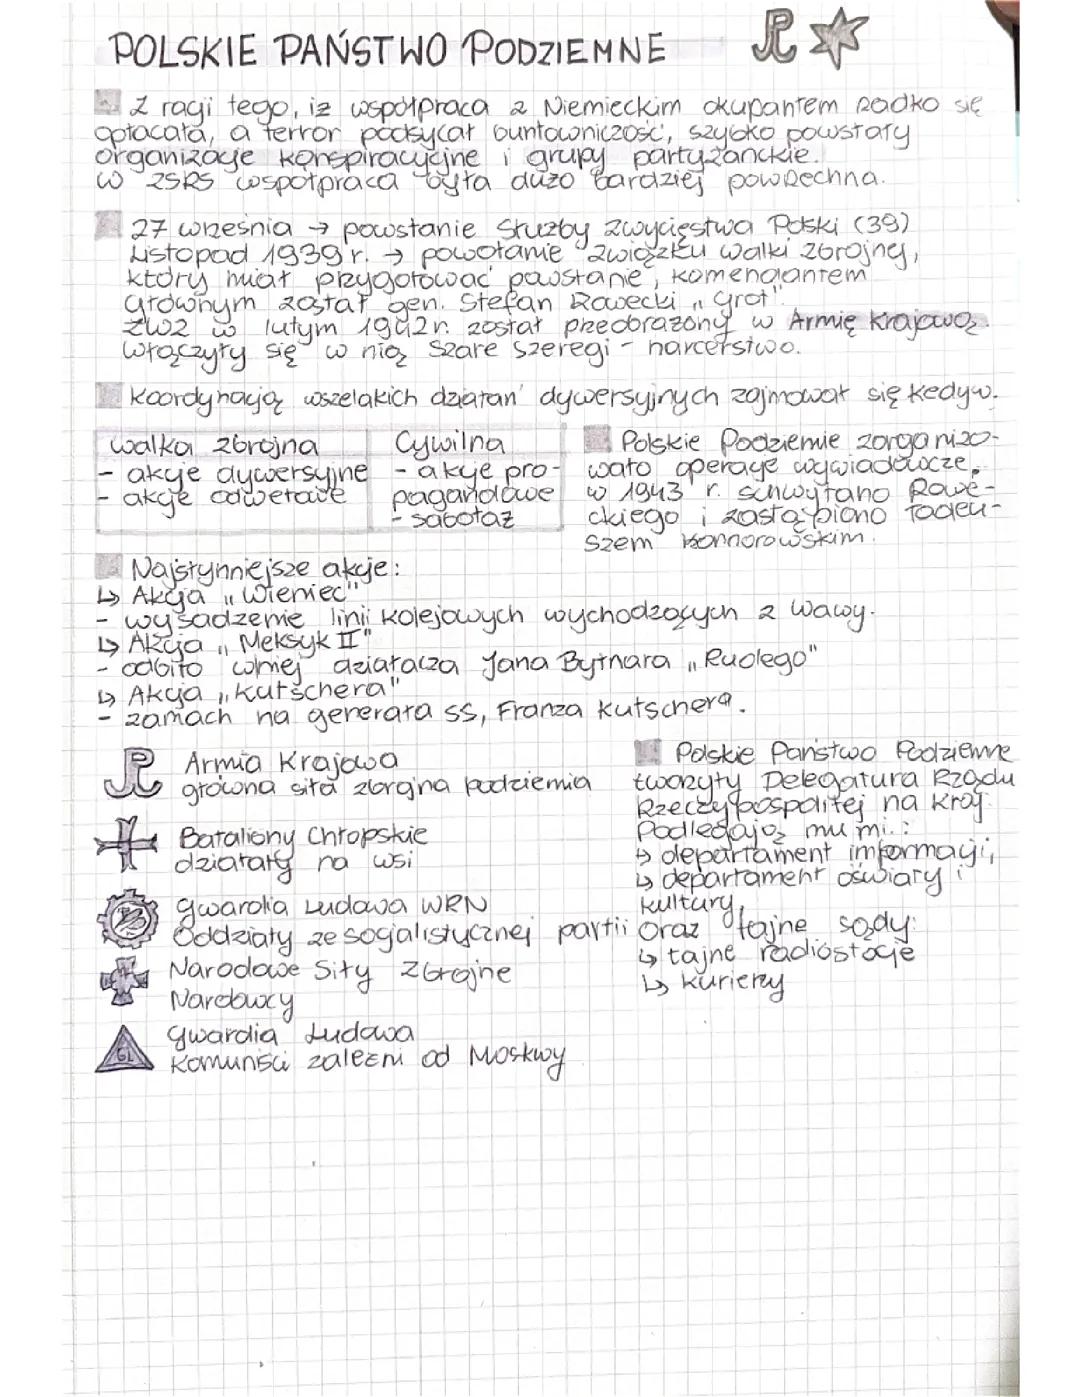 POLSKIE PAŃSTWO PODZIEMNE
Z racji tego, iż współpraca z Niemieckim okupantem rzadko się
opłacała, a terror podsycał buntowniczość, szybko powstały
organizacje konspiracyjne i grupy partyzanckie.
W ZSRS współpraca była dużo bardziej powszechna.
27 września → powstanie Służby Zwycięstwa Polski (39)
Listopad 1939 r. → powołanie Związku Walki Zbrojnej,
który miał przygotować powstanie, komendantem
głównym został gen. Stefan Rowecki „Grot".
ZWZ w lutym 1942r. został przeobrażony w Armię Krajową.
Włączyły się w nią Szare Szeregi - harcerstwo.
Koordynacją wszelakich działań dywersyjnych zajmował się Kedyw.
Walka zbrojna
- akcje dywersyjne
- akcje odwetowe
Cywilna
- akcje pro-
pagandowe
- sabotaż
Polskie Podziemie zorganizo-
wało operacje wywiadowcze,
w 1943 r. schwytano Rowe-
ckiego i zastąpiono Tadeu-
szem Komorowskim.
Najsłynniejsze akcje:
↳ Akcja „Wieniec"
- wysadzenie linii kolejowych wychodzących z Wawy.
↳ Akcja „Meksyk II"
- odbito w niej działacza Jana Bytnara „Rudego"
↳ Akcja „Kutschera"
- zamach na generała SS, Franza Kutschera.
Armia Krajowa
główna siła zbrojna podziemia
Bataliony Chłopskie
działały na wsi
Gwardia Ludowa WRN
Oddziały ze socjalistycznej partii
Narodowe Siły Zbrojne
Narodowcy
GL
Gwardia Ludowa
Komuniści zależni od Moskwy
Polskie Państwo Podziemne
tworzyły Delegatura Rządu
Rzeczypospolitej na Kraj.
Podlegają mu mi.:
↳ departament informacji,
↳ departament oświaty i
kultury,
oraz tajne sądy:
↳ tajne radiostacje
↳ kurierzy